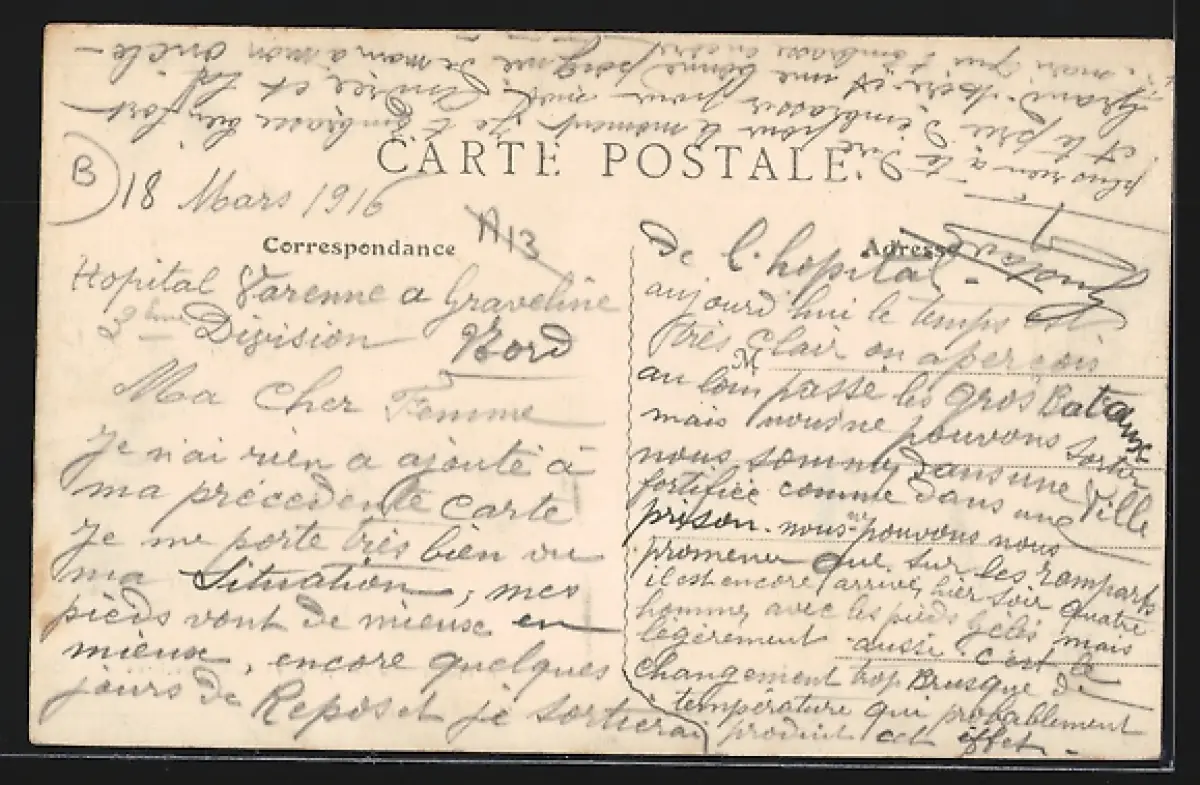 CARTE POSTALE
B
18 Mars 1916
A 13
Correspondance
Adresse
M
Hopital Varenne a Graveline
2eme Division Nord
Ma Cher Femme
Je n'ai rien a ajouté à
ma précedente carte
Je me porte très bien vu
ma Situation, mes
pieds vont de mieux en
mieux, encore quelques
jours de Repos et je sortirai
de l'hopital.
aujourd'hui le temps est
très clair on aperçois
au loin passé les gros Bataux
mais nous ne pouvons sortir
nous sommes dans une Ville
fortifiée comme dans une
prison. nous ne pouvons nous
promener que sur les remparts
il est encore arrivé hier soir quatre
hommes avec les pieds gelés mais
légèrement aussi c'est le
changement trop Brusque de
température qui probablement
produit cet effet.
plus rien à te dire
et te prie d'embrasser pour moi
pour le moment je t'embrasse bien fort
Grand-Mère et une bonne poigne de main a mon oncle
mari que t'embrasse encore
Gustave